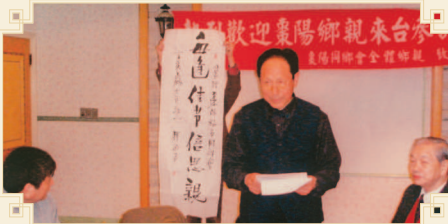 熱烈歡迎棗陽鄉親來台參
棗陽同鄉會全體鄉親
每逢佳节倍思親